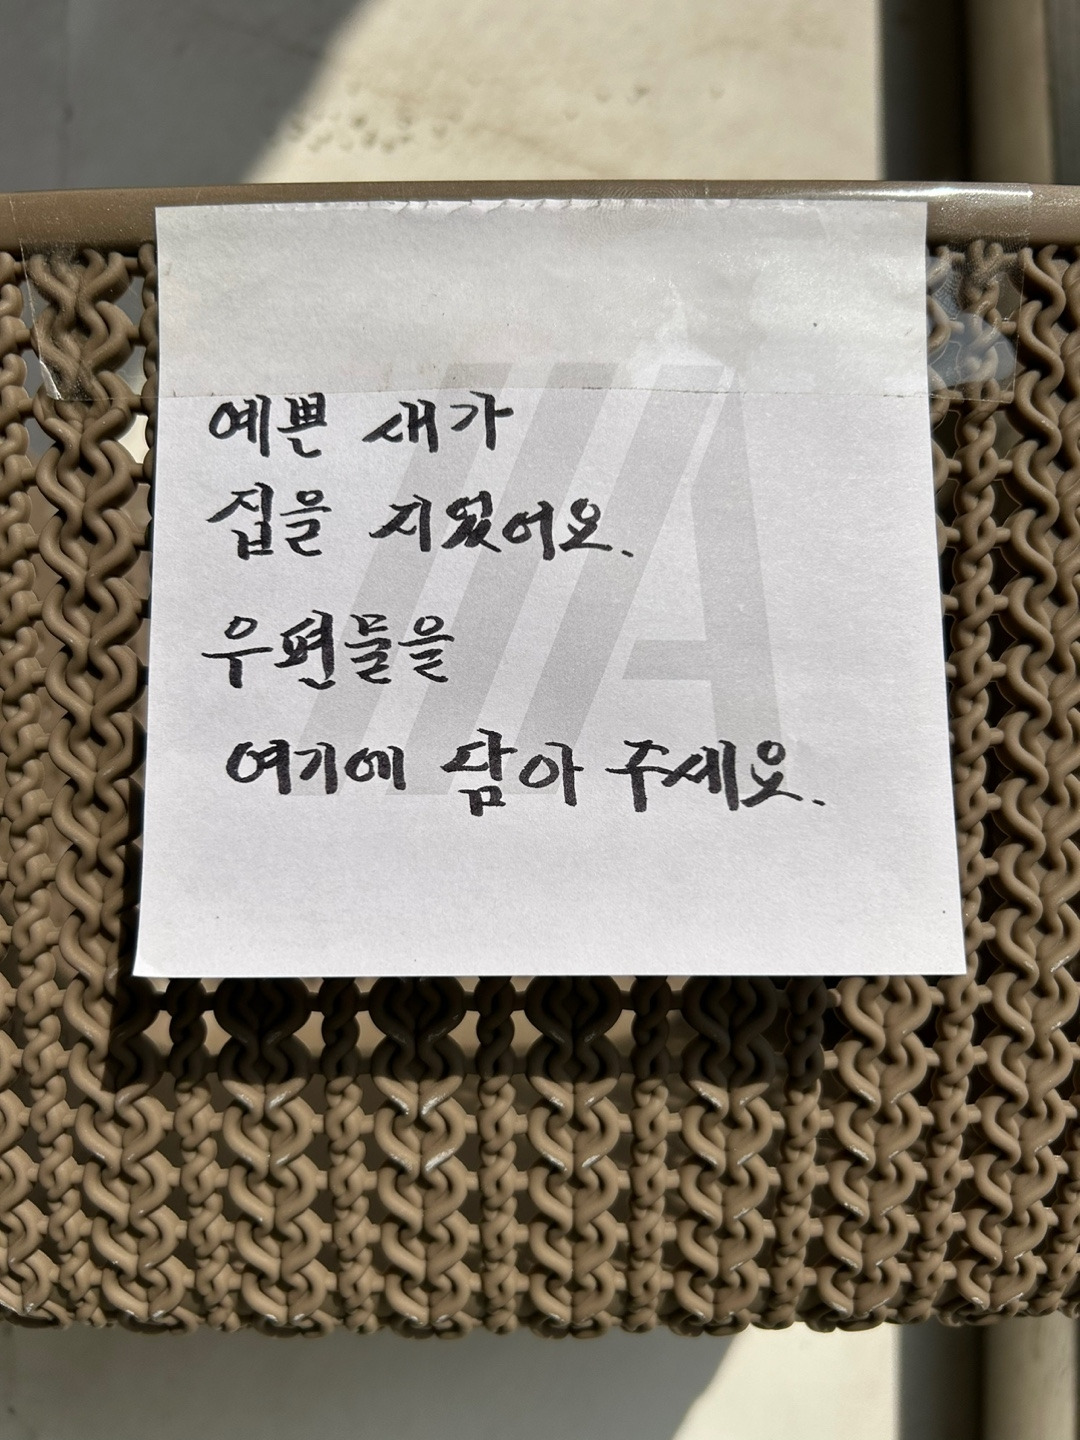 예쁜 새가
집을 지었어요.
우편들을
여기에 담아 주세요.